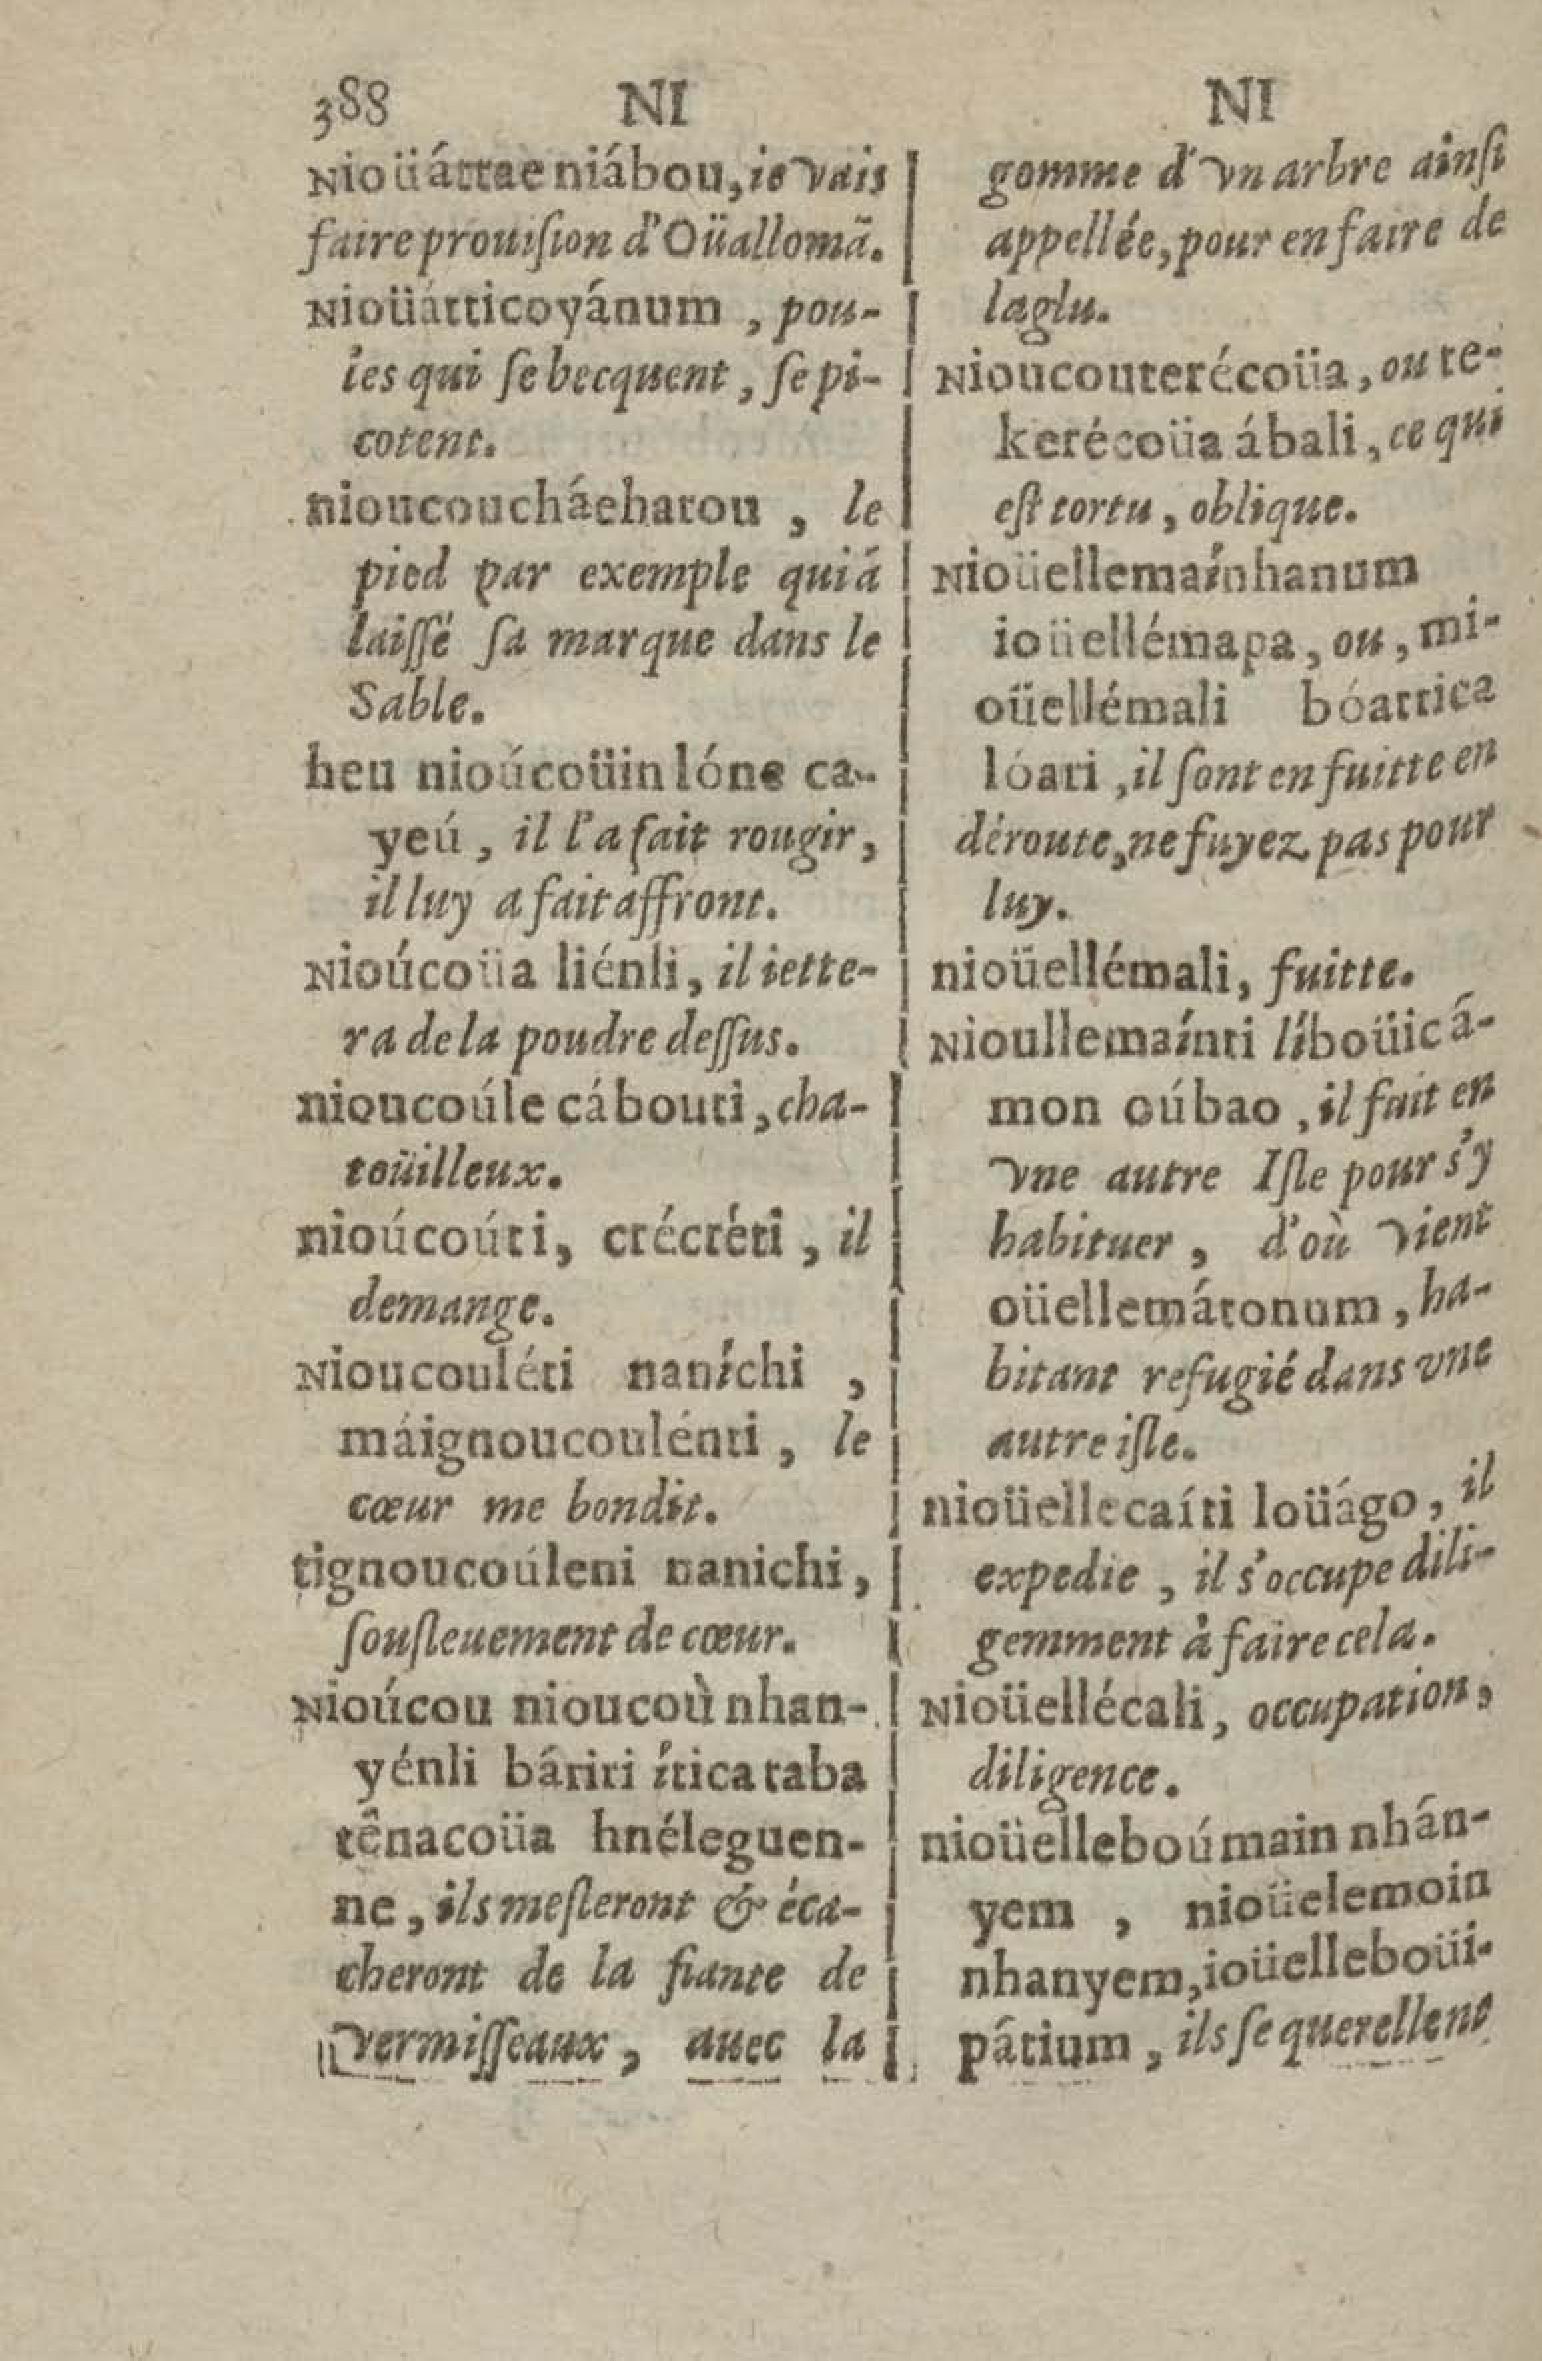 388 NI NI
Nioüáttae niábou, ie vais
faire prouiſion d'Oüallomã.
Nioüátticoyánum , pou-
ies qui ſe becquent , ſe pi-
cotent.
nioucoucháeharou , le
pied par exemple qui á
laiſſé ſa marque dans le
Sable.
heu nioúcoüin lóne ca-
yeú , il l'a fait rougir ,
il luy a fait affront.
Nioúcoüa liénli, il iette-
ra de la poudre deſſus.
nioucoúle cábouti , cha-
toüilleux.
nioúcoúti, crécréti , il
demange.
Nioucouléti naníchi ,
máignoucoulénti , le
cœur me bondit.
tignoucoúleni nanichi ,
ſouſleuement de cœur.
Nioúcou nioucoù nhan-
yénli báriri ítica taba
tênacoüa hnéleguen-
ne , ils meſleront & éca-
cheront de la fiante de
vermiſſeaux , auec la
gomme d'vn arbre ainſi
appellée, pour en faire de
la glu.
Nioucouterécoüa, ou te-
kerécoüa ábali , ce qui
eſt tortu , oblique.
Nioüellemaínhanum
ioüellémapa , ou , mi-
oüellémali bóattica
lóari , il ſont en fuitte en
déroute, ne fuyez pas pour
luy.
nioüellémali, fuitte.
Nioullemaínti líboüic á-
mon oúbao , il fuit en
vne autre Iſle pour s'y
habituer , d'où vient
oüellemátonum , ha-
bitant refugié dans vne
autre iſle.
nioüellecaíti loüágo , il
expedie , il s'occupe dili-
gemment à faire cela.
Nioüellécali, occupation ,
diligence.
nioüelleboúmain nhán-
yem , nioüelemoin
nhanyem, ioüelleboüi-
pátium , ils ſe querellent